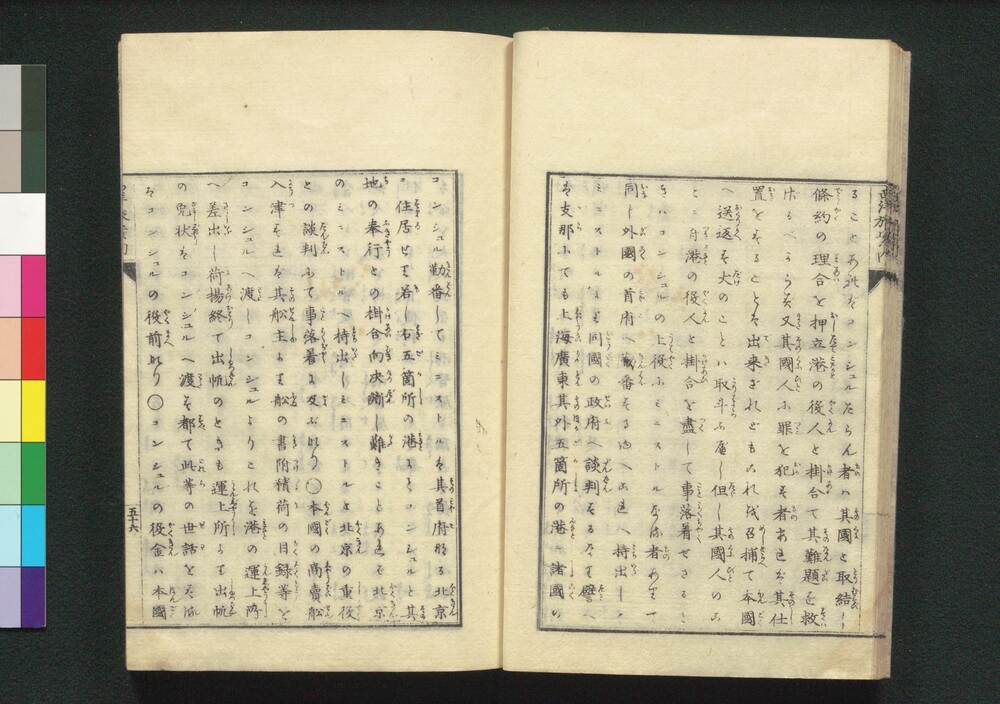 ることあればコンシュルたらん者ハ其國と取結し
條約の理合を押立港の役人と掛合て其難題を救
はるべからず又其國人小罪を犯す者あれば其仕
置をすることも出来ざれどもこれ代召捕て本國
へ送返す丈のことハ取斗ふ
但し其國人の
コンシュルの上役ふミニストルなる者ありて
港の役人と掛合を盡して事落着せざる
同し外國の首府へ
番する
持出し
ミニストルより同國の政府へ談判するなり譬へ
ば支那にても上海廣東其外五箇所の港に諸國の
コンシュル勤番してミニストルは其首府なる北京
に住居せり若し右五箇所の港にてコンシュルと其
地の奉行との掛合向決断し難きことあれば北京
のミニストルへ持出しミニストルと北京の重役
との談判にて事落着に及ぶなり○本國の商賣船
入津すれば其船主より船の書附積荷の目録等を
コンシュルへ渡しコンシュルよりこれを港の運上所
へ差出し荷揚終て出帆のときも運上所より出帆
の免状をコンシュルへ渡す都て此等の世話をなすは
コンシュルの役前なり○コンシュルの役金ハ本國
五十六